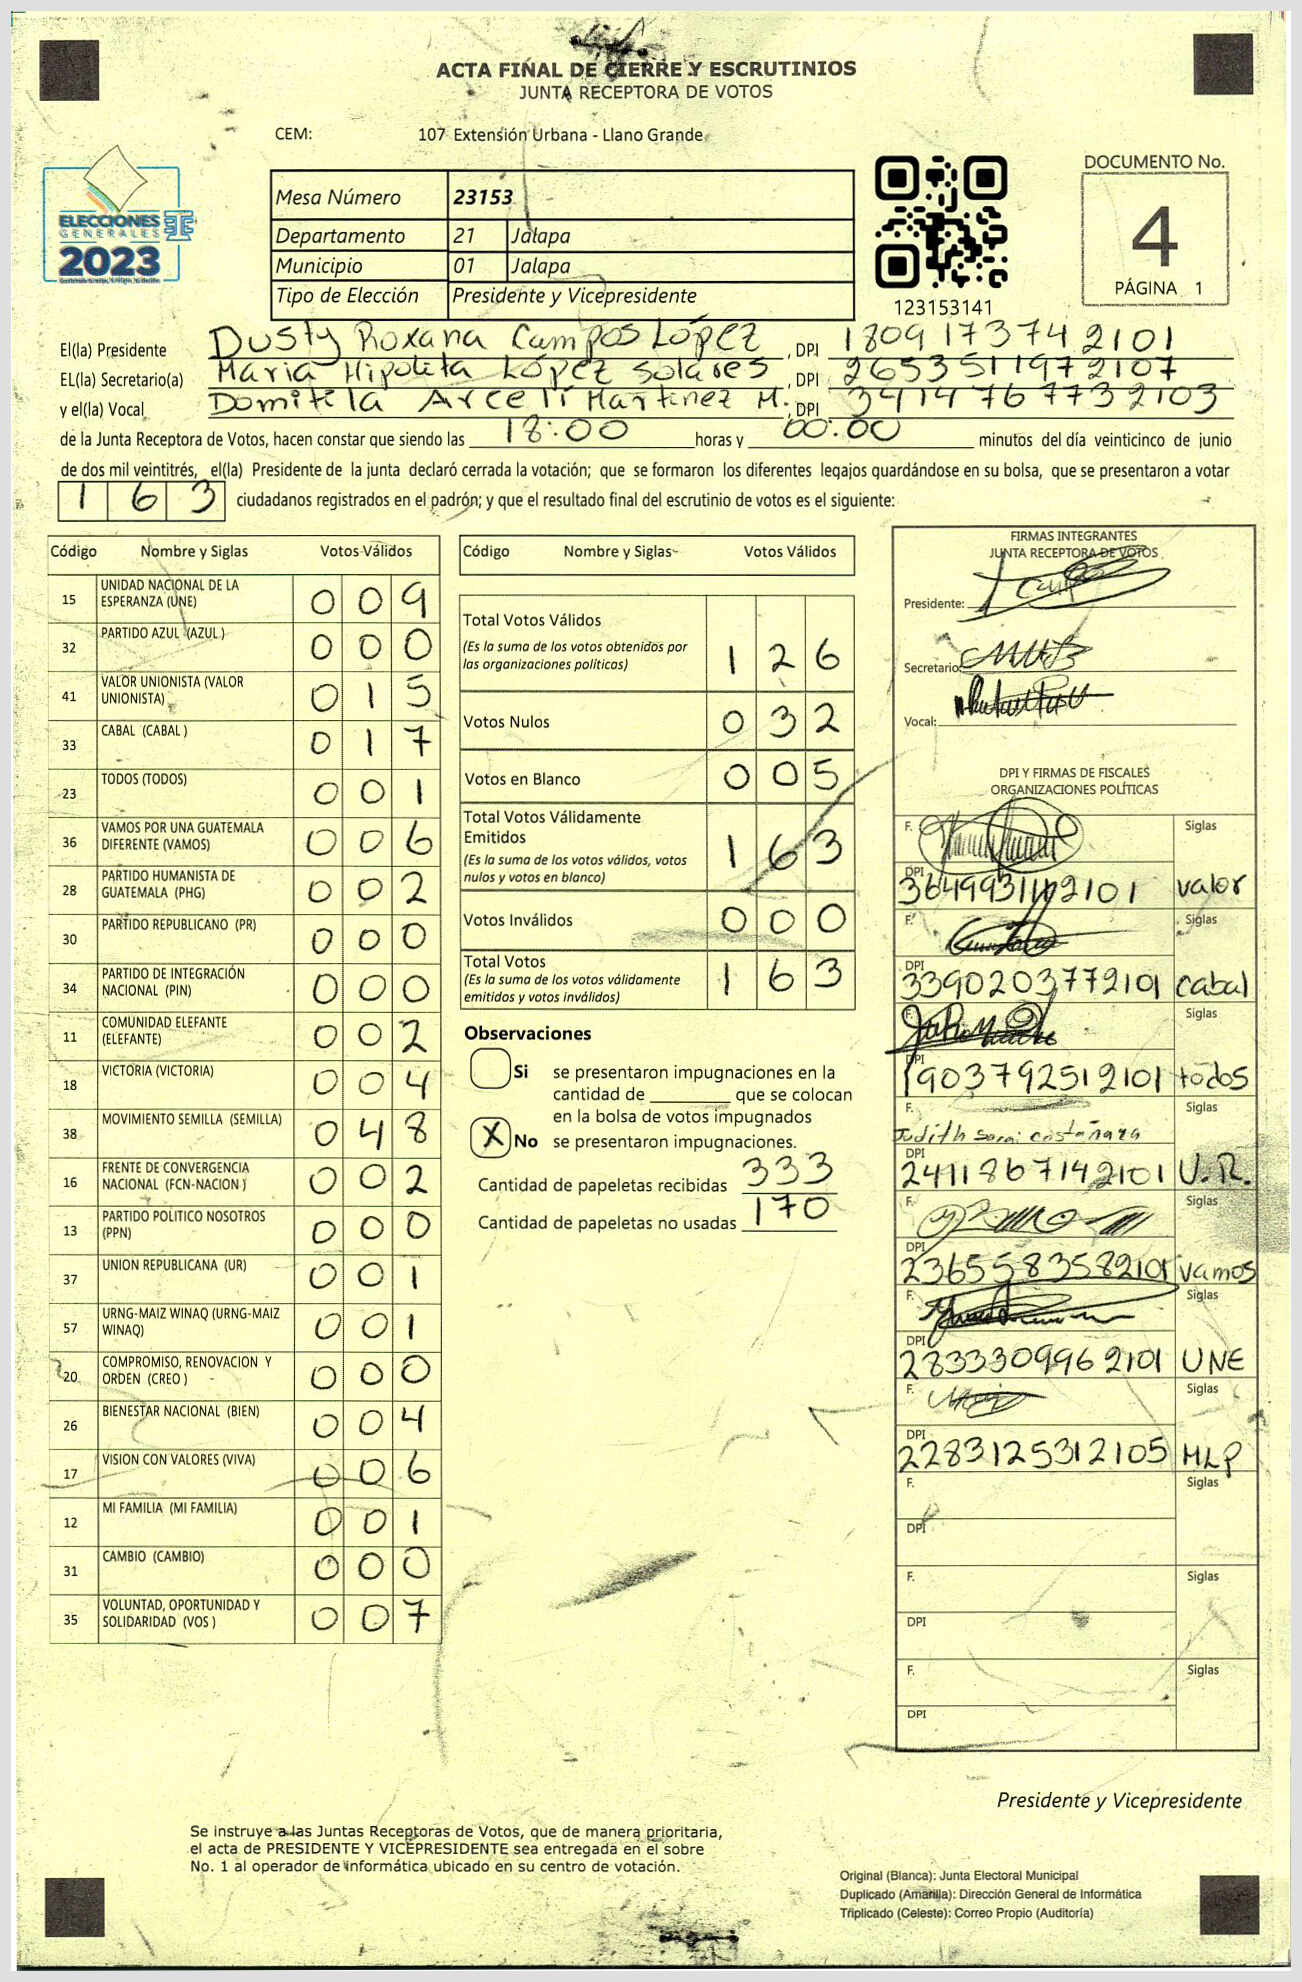 ACTA FINAL DE CIERRE Y ESCRUTINIOS
JUNTA RECEPTORA DE VOTOS
CEM: 107 Extensión Urbana - Llano Grande
ELECCIONES
GENERALES
2023
Mesa Número 23153
Departamento 21 Jalapa
Municipio 01 Jalapa
Tipo de Elección Presidente y Vicepresidente
123153141
DOCUMENTO No.
4
PÁGINA 1
El(la) Presidente Dusty Roxana Campos López , DPI 1809173742101
EL(la) Secretario(a) Maria Hipolita López Solares , DPI 2653511972107
y el(la) Vocal Domitila Arceli Martinez M. , DPI 3414767732103
de la Junta Receptora de Votos, hacen constar que siendo las 18:00 horas y 00:00 minutos del día veinticinco de junio
de dos mil veintitrés, el(la) Presidente de la junta declaró cerrada la votación; que se formaron los diferentes legajos guardándose en su bolsa, que se presentaron a votar
163 ciudadanos registrados en el padrón; y que el resultado final del escrutinio de votos es el siguiente:
Código Nombre y Siglas Votos Válidos
15 UNIDAD NACIONAL DE LA ESPERANZA (UNE) 009
32 PARTIDO AZUL (AZUL ) 000
41 VALOR UNIONISTA (VALOR UNIONISTA) 015
33 CABAL (CABAL ) 017
23 TODOS (TODOS) 001
36 VAMOS POR UNA GUATEMALA DIFERENTE (VAMOS) 006
28 PARTIDO HUMANISTA DE GUATEMALA (PHG) 002
30 PARTIDO REPUBLICANO (PR) 000
34 PARTIDO DE INTEGRACIÓN NACIONAL (PIN) 000
11 COMUNIDAD ELEFANTE (ELEFANTE) 002
18 VICTORIA (VICTORIA) 004
38 MOVIMIENTO SEMILLA (SEMILLA) 048
16 FRENTE DE CONVERGENCIA NACIONAL (FCN-NACION ) 002
13 PARTIDO POLITICO NOSOTROS (PPN) 000
37 UNION REPUBLICANA (UR) 001
57 URNG-MAIZ WINAQ (URNG-MAIZ WINAQ) 001
20 COMPROMISO, RENOVACION Y ORDEN (CREO ) 000
26 BIENESTAR NACIONAL (BIEN) 004
17 VISION CON VALORES (VIVA) 006
12 MI FAMILIA (MI FAMILIA) 001
31 CAMBIO (CAMBIO) 000
35 VOLUNTAD, OPORTUNIDAD Y SOLIDARIDAD (VOS ) 007
Código Nombre y Siglas Votos Válidos
Total Votos Válidos
(Es la suma de los votos obtenidos por las organizaciones políticas) 126
Votos Nulos 032
Votos en Blanco 005
Total Votos Válidamente Emitidos
(Es la suma de los votos válidos, votos nulos y votos en blanco) 163
Votos Inválidos 000
Total Votos
(Es la suma de los votos válidamente emitidos y votos inválidos) 163
Observaciones
Si se presentaron impugnaciones en la
cantidad de ________ que se colocan
en la bolsa de votos impugnados
X No se presentaron impugnaciones.
Cantidad de papeletas recibidas 333
Cantidad de papeletas no usadas 170
FIRMAS INTEGRANTES
JUNTA RECEPTORA DE VOTOS
Presidente:
Secretario:
Vocal:
DPI Y FIRMAS DE FISCALES
ORGANIZACIONES POLÍTICAS
F. Siglas
DPI valor
F. Siglas
DPI 3390203772101 cabal
F. Siglas
DPI 1903792512101 todos
F. Judith Sarai Siglas
DPI 2411867142101 U.R.
F. Siglas
DPI 2365583582101 vamos
F. Siglas
DPI 2833309962101 UNE
F. Siglas
DPI 2283125312105 MLP
F. Siglas
DPI
F. Siglas
DPI
F. Siglas
DPI
Presidente y Vicepresidente
Se instruye a las Juntas Receptoras de Votos, que de manera prioritaria,
el acta de PRESIDENTE Y VICEPRESIDENTE sea entregada en el sobre
No. 1 al operador de informática ubicado en su centro de votación.
Original (Blanca): Junta Electoral Municipal
Duplicado (Amarilla): Dirección General de Informática
Triplicado (Celeste): Correo Propio (Auditoría)